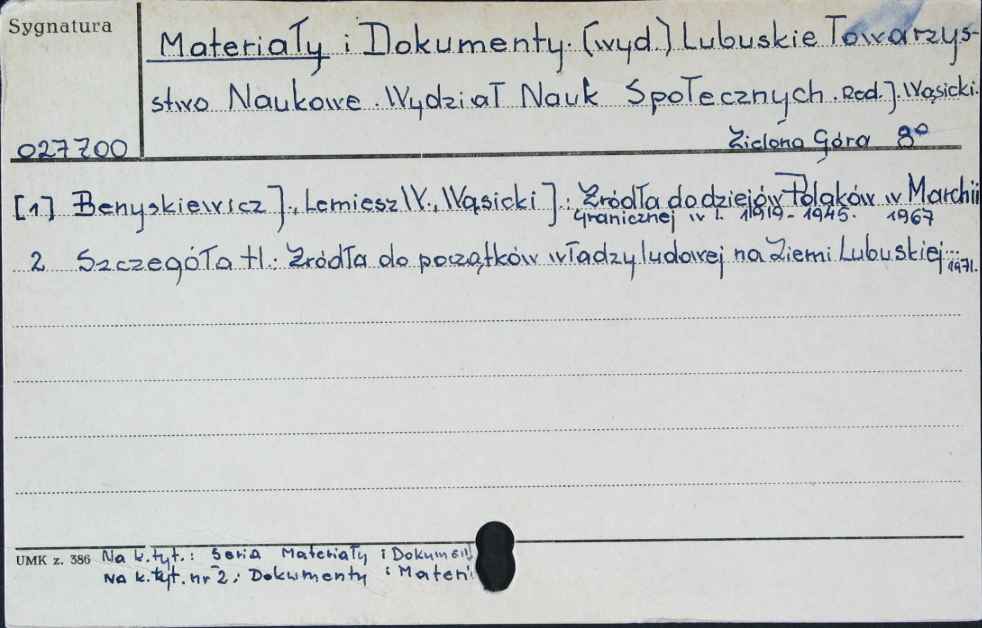 Sygnatura
Materiały i Dokumenty. (wyd.) Lubuskie Towarzys-
stwo Naukowe. Wydział Nauk Społecznych. Red. J. Wąsicki.
027700
Zielona Góra 8°
[1] Benyskiewicz J., Lemiesz W., Wąsicki J.: Źródła do dziejów Polaków w Marchii
Granicznej w l. 1919-1945. 1967
2 Szczegóła H.: Źródła do początków władzy ludowej na Ziemi Lubuskiej... 1971.
UMK z. 386 Na k.tyt.: Seria Materiały i Dokumen
Na k.tyt. nr 2: Dokumenty i Materi